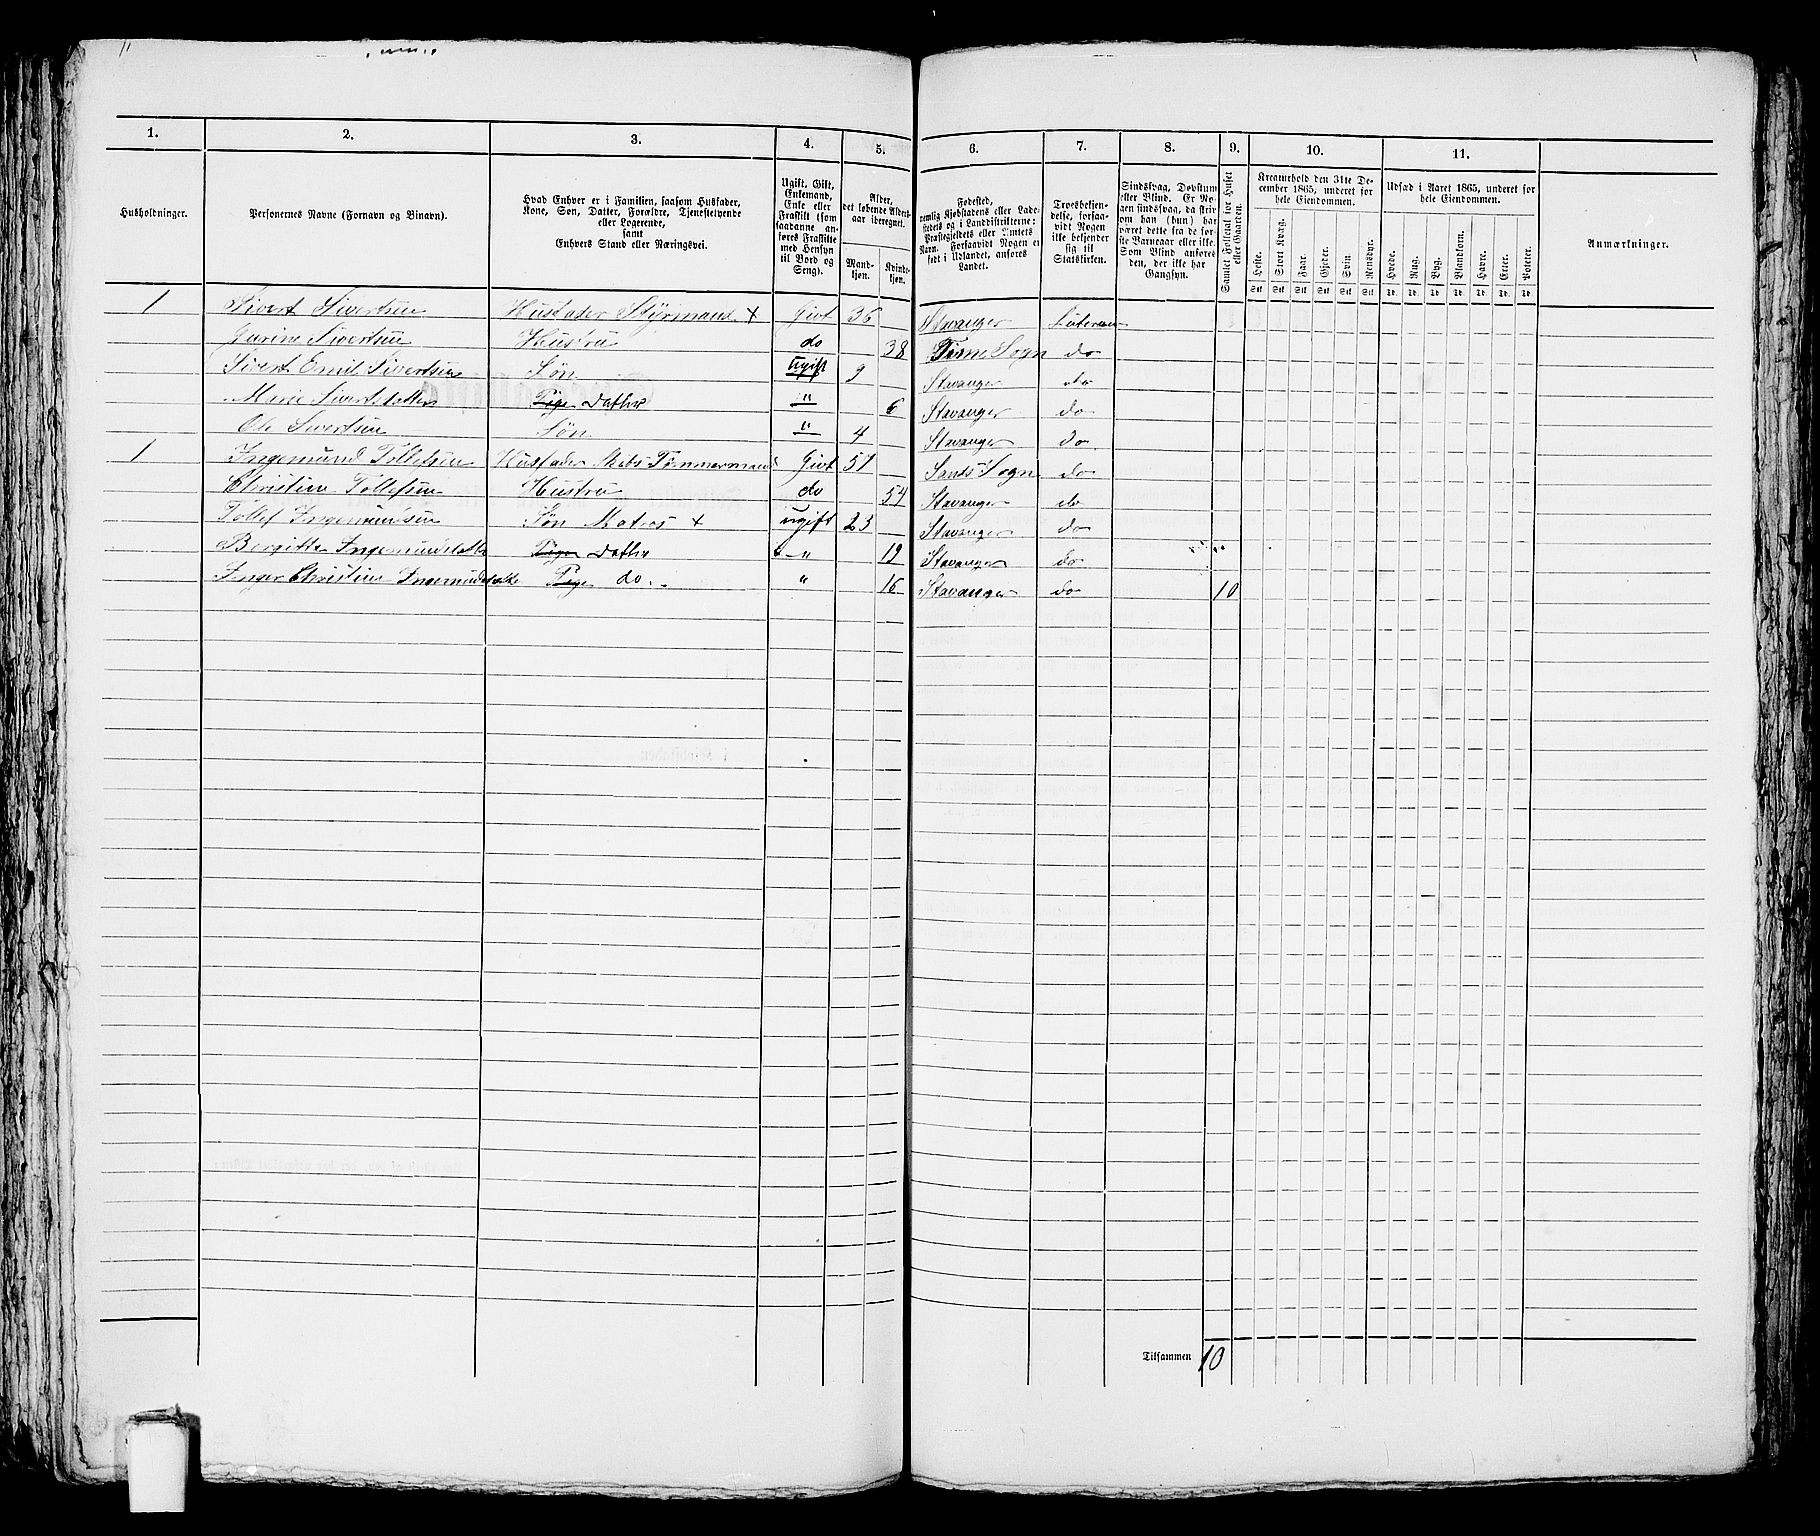 1. 2. 3. 4. 5. 6. 7. 8. 9. 10. 11.
Husholdninger.
Personernes Navne (Fornavn og Binavn).
Hvad Enhver er i Familien, saasom Husfader, Kone, Søn, Datter, Forældre, Tjenestetyende eller Logerende, samt Enhvers Stand eller Næringsvei.
Ugift, Gift, Enkemand, Enke eller Fraskilt (som saadanne anføres Fraskilte med Hensyn til Bord og Seng).
Alder, det løbende Aldersaar iberegnet.
Mandkjøn.
Kvindekjøn.
Fødested, nemlig Kjøbstadens eller Ladestedets og i Landdistrikterne: Præstegjeldets eller Amtets Navn. Forsaavidt Nogen er født i Udlandet, anføres Landet.
Troesbefjendelse, forsaavidt Nogen ikke bekjender sig til Statskirken.
Sindssvag, Døvstum eller Blind. Er Nogen sindssvag, da skrives om han (hun) har været dette fra de første Barneaar eller ikke. Som Blind anføres den, der ikke har Gangsyn.
Samlet Folketal for Huset eller Gaarden.
Kreaturhold den 31te December 1865, underet for hele Eiendommen.
Heste. Stort Kvæg. Faar. Gjeder. Svin. Rensdyr.
Udsæd i Aaret 1865, underet for hele Eiendommen.
Hvede. Rug. Byg. Blandkorn. Havre. Erter. Poteter.
Anmærkninger.
1 Sivert Sivertsen Husfader Styrmand + Givt 36 Stavanger Luteran
Gurine Sivertsen Hustru do 38 Sogn do
Sivert Emil Sivertsen Søn Ugift 9 Stavanger do
Marie Sivertsdatter Pige Datter " 6 Stavanger do
Ole Sivertsen Søn " 4 Stavanger do
1 Ingemund Tollefsen Husfader Tømmermand Givt 51 Sands Sogn do
Christine Tollefsen Hustru do 54 Stavanger do
Tollef Ingemundsen Søn Matros + ugift 23 Stavanger do
Bergitte Ingemundsdatter Pige Datter " 19 Stavanger do
Inger Christine Ingemundsdatter Pige do. " 16 Stavanger do 10
Tilsammen 10